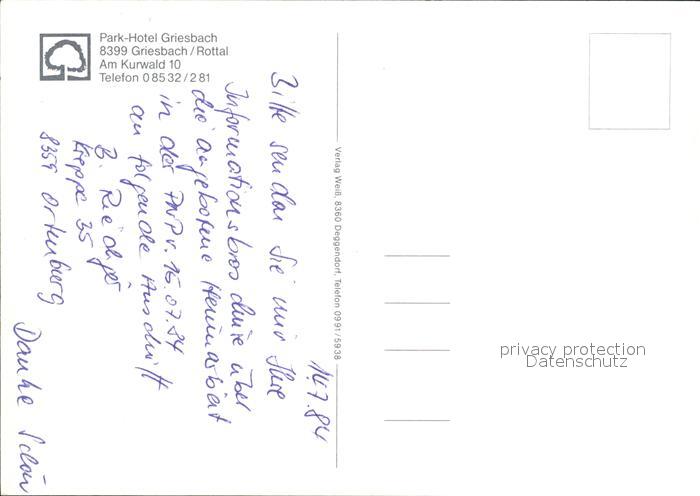 Park-Hotel Griesbach
8399 Griesbach/Rottal
Am Kurwald 10
Telefon 0 85 32/2 81
14.7.84
Bitte senden Sie mir Ihre
Informationsbroschüre über
die angebotene Heimarbeit
in der PNP v. 15.07.84
an folgende Anschrift
B. Riediger
Kieppe 35
8359 Ortenburg
Danke Schön
Verlag Weiß, 8360 Deggendorf, Telefon 09 91/59 38
privacy protection
Datenschutz